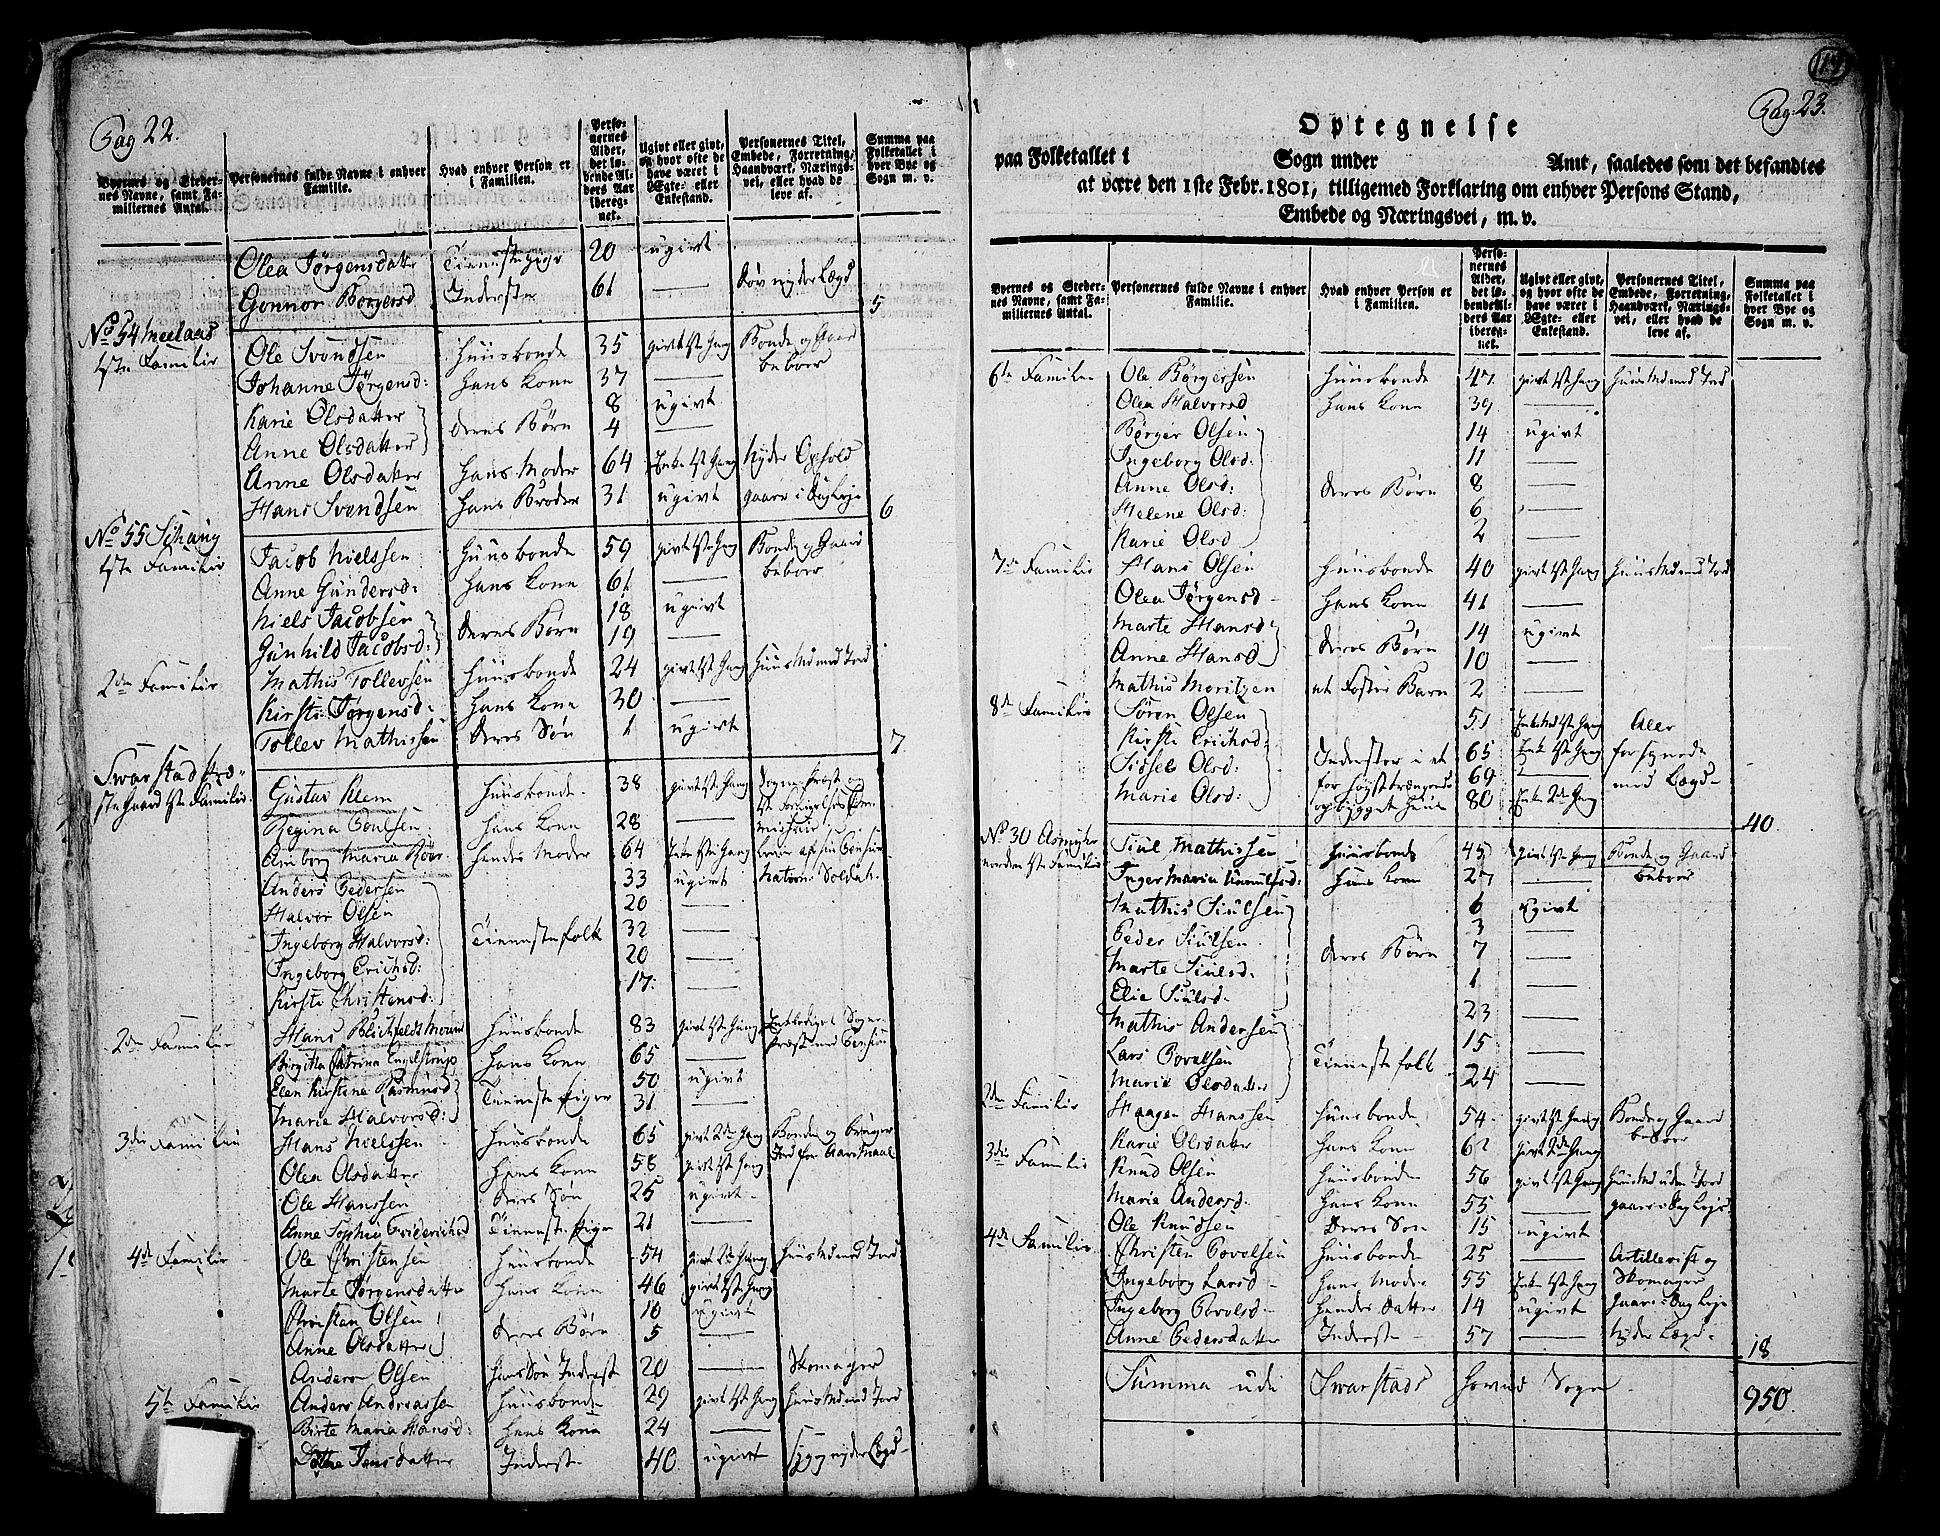 Pag 22.
Byernes og Stedernes Navne, samt Familiernes Antal.
Personernes fulde Navne i enhver Familie.
Hvad enhver Person er i Familien.
Personernes Alder, det løbende Alders Aar iberegnet.
Ugivt eller givt, og hvor ofte de have været i Ægte- eller Enkestand.
Personernes Titel, Embede, Forretning, Haandværk, Næringsvei, eller hvad de leve af.
Summa paa Folketallet i hver Bye og Sogn m. v.
Olea Jørgensdatter Tienestepige 20 ugivt
Gonnor Borgersd Inderster 61 — Døv nyder Lægd 5
No 54 Meelaas
1ste Familie Ole Svendsen Huusbonde 35 givt 1ste Gang Bonde og Gaardbeboer
Johanne Jørgensd: Hans Kone 37 —
Karie Olsdatter deres Børn 8 ugivt
Anne Olsdatter 4 —
Anne Olsdatter Hans Moder 64 Enke 1ste Gang Nyder Ophold
Hans Svendsen Hans Broder 31 ugivt gaaer i Dagleje 6
No 55 Schaug
1ste Familie Jacob Nielssen Huusbonde 59 givt 1ste Gang Bonde og Gaardbeboer
Anne Gundersd: Hans Kone 61 —
Niels Jacobsen deres Børn 18 ugivt
Gunhild Jacobsd: 19 —
2den Familie Mathis Tollevsen Huusbonde 24 givt 1ste Gang Huusmd med Jord
Kirsti Jørgensd: Hans Kone 30 —
Tollev Mathissen deres Søn 1 ugivt 7
Swarstad Præstegaard 1ste Familie Gustav Klem Huusbonde 38 givt 1ste Gang Sognepræst og
1ste Forligelses Commissair
Regina Poulsen Hans Kone 28 —
Amborg Maria Röer Hendes Moder 64 Enke 1ste Gang lever af sin Pension
Anders Pedersen 33 ugivt National Soldat
Halvor Olsen 20 —
Ingeborg Halvorsd: Tienestefolk 32 —
Ingeborg Erichsd: 20 —
Kirsti Christensd: 17 —
2den Familie Hans Blichfeldt Huusbonde 83 givt 1ste Gang Entlediget Sognepræst med Pension
Birgitta Catrina Hans Kone 65 —
Elen Kirstine Rasmusd Tienestepiger 50 ugivt
Marie Halvorsd: 31 —
3die Familie Hans Nielssen Huusbonde 65 givt 2den Gang Bonde og bruger
Jord for Aaremaal
Olea Olsdatter Hans Kone 58 givt 1ste Gang
Ole Hanssen deres Søn 25 ugivt
Anne Sophia Friderichsd Tienestepige 21 —
4de Familie Ole Christensen Huusbonde 54 givt 2den Gang Huusmd med Jord
Marte Jørgensdatter Hans Kone 46 givt 1ste Gang
Christen Olsen deres Børn 10 ugivt
Anne Olsdatter 5 —
Anders Olsen Hans Søn Inderst 20 — Skomager
5te Familie Anders Andreassen Huusbonde 29 givt 1ste Gang Huusmd med Jord
Birte Maria Hansd: Hans Kone 24 —
Jensdatter Inderste 40 ugivt nyder Lægd
Pag: 23.
Optegnelse
paa Folketallet i Sogn under Amt, saaledes som det befandtes
at være den 1ste Febr. 1801, tilligemed Forklaring om enhver Persons Stand,
Embede og Næringsvei, m. v.
Byernes og Stedernes Navne, samt Familiernes Antal.
Personernes fulde Navne i enhver Familie.
Hvad enhver Person er i Familien.
Personernes Alder, det løbende Alders Aar iberegnet.
Ugivt eller givt, og hvor ofte de have været i Ægte- eller Enkestand.
Personernes Titel, Embede, Forretning, Haandværk, Næringsvei, eller hvad de leve af.
Summa paa Folketallet i hver Bye og Sogn m. v.
6te Familie Ole Børgersen Huusbonde 47 givt 1ste Gang Huusmd med Jord
Olea Halvorsd Hans Kone 39 —
Børger Olsen 14 ugivt
Ingeborg Olsd: 11 —
Anne Olsd: deres Børn 8 —
Helene Olsd: 6 —
Karie Olsd 2 —
7de Familie Hans Olsen Huusbonde 40 givt 1ste Gang Huusmd med Jord
Olea Jørgensd Hans Kone 41 —
Marte Hansd: deres Børn 14 ugivt
Anne Hansd 10 —
Mathis Moritzen et Foster Barn 2 —
8de Familie Søren Olsen 51 Enkemd 1ste Gang Alle
Kirsti Erichsd: Inderster i et 65 Enke 1ste Gang forsynede
Sissel Olsd: for høystrængende 69 — med Lægd
Marie Olsd: opbygget Huus 80 Enke 2den Gang 40
No 30 Asmyhr
norden 1ste Familie Siul Mathissen Huusbonde 45 givt 1ste Gang Bonde og Gaardbeboer
Inger Maria Hans Kone 27 —
Mathis Siulsen 6 Ugivt
Peder Siulsen deres Børn 3 —
Marte Siulsd. 7 —
Elie Siulsd. 1 —
Mathis Andersen 23 —
Lars Povelsen Tienestefolk 15 —
Marie Olsdatter 24 —
2den Familie Haagen Hanssen Huusbonde 54 givt 1ste Gang Bonde og Gaardbeboer
Karie Olsdatter Hans Kone 62 givt 2den Gang
3die Familie Knud Olsen Huusbonde 56 givt 1ste Gang Huusmd uden Jord
Marie Andersd. Hans Kone 55 — gaaer i Dagleje
Ole Knudsen Deres Søn 15 ugivt
4de Familie Christen Povelsen Huusbonde 25 — Artillerist og
Ingeborg Larsd Hans Moder 55 Enke 1ste Gang Skomager
Ingeborg Povelsd Hendes Datter 14 ugivt Gaaer i Dagleje
Anne Pedersdatter Inderste 57 — Nyder Lægd 18
Summa udi Swarstads Hoved Sogn 950.